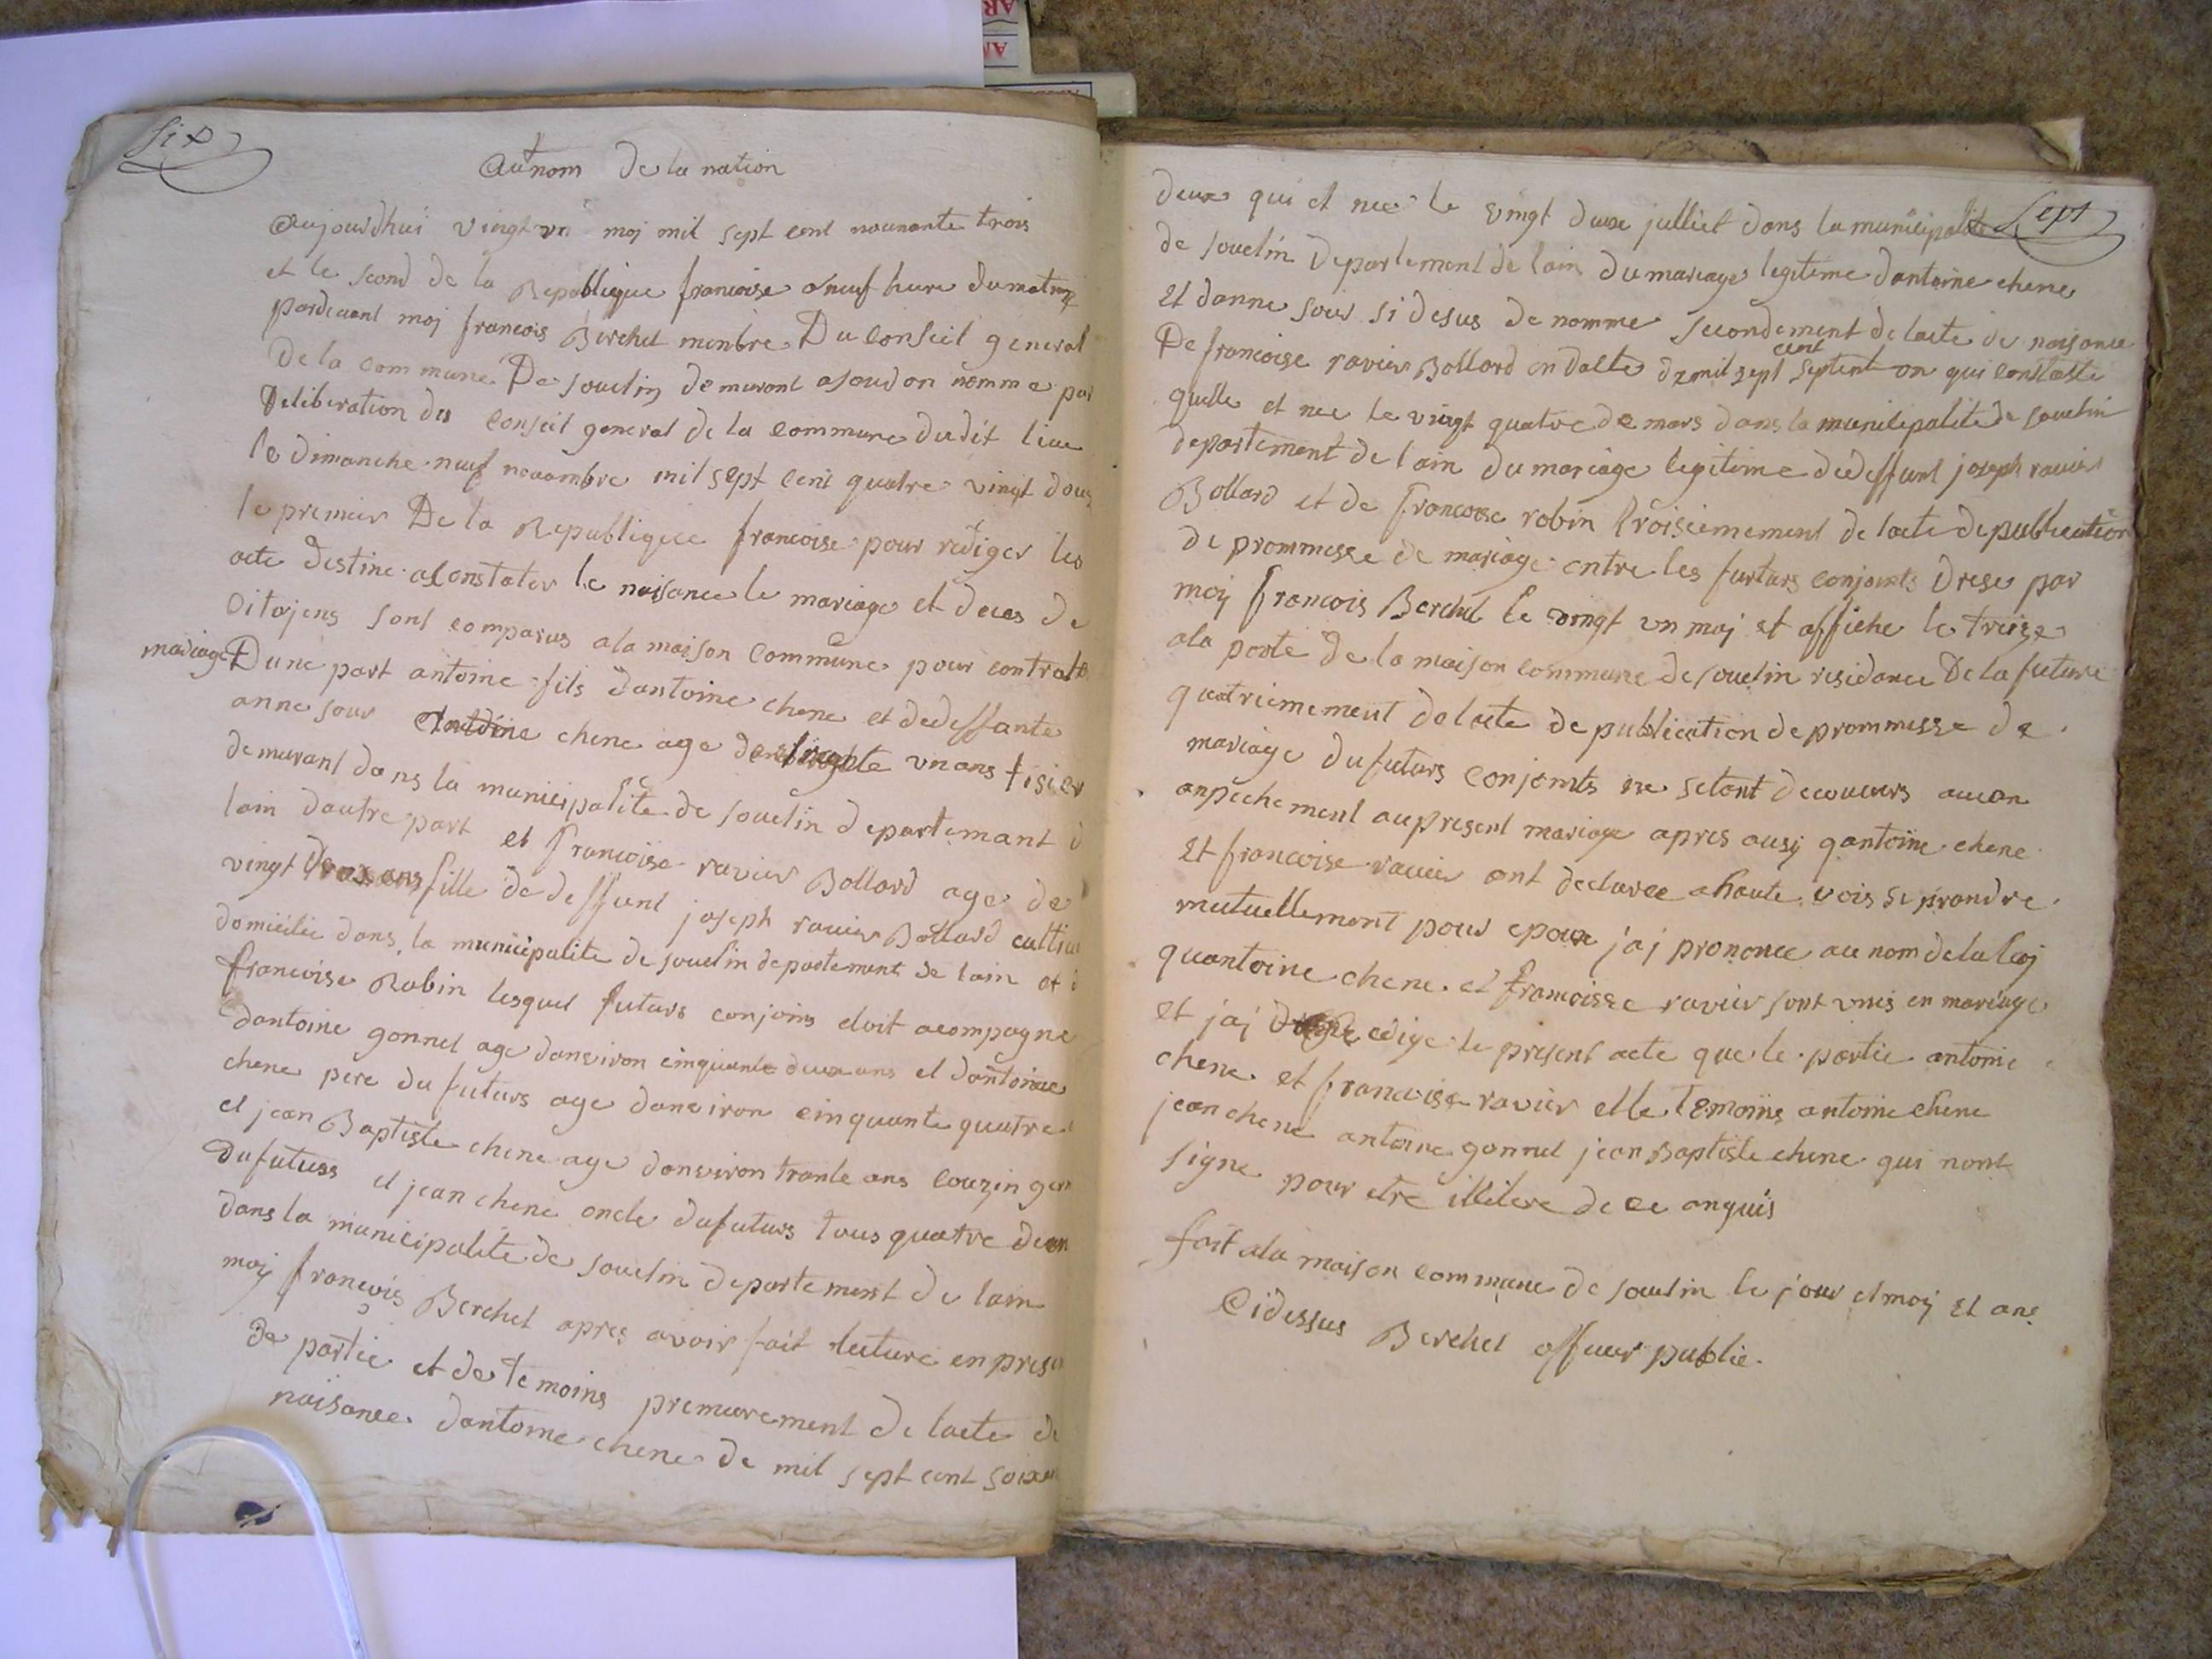 six
Au nom de la nation
aujourdhui vingt un moj mil sept cent nounante trois
et le scond de la Republique francoise a neuf hure du matin
pardevant moj francois Berchet menbre Du Conseil general
De la commune De souclin demurant a soudon nomme par
Deliberation du conseil general de la commune dudit lieu
le dimanche neuf novambre mil sept cent quatre vingt douz
le premier De la Republique francoise pour rediger les
acte destine a Constater le naisance le mariage et deces de
Citojens sont comparus a la maison Commune pour contrate
mariage
Dune part antoine fils dantoine chene et de deffante
anne sour chene age de vn ans tisier
demurant dans la municipalite de souclin departemant d
lain dautre part et francoise ravier Bollard age de
vingt deux ans fille de deffunt joseph ravier Bollard cultiv
domicilie dans la municipalite de souclin departement de lain et d
francoise Robin lesquel futurs conjoins etoit acompagne
dantoine gonnet age danviron cinquante deux ans et dantoine
chene pere du futurs age danviron cinquante quatre
et jean Baptiste chene age danviron trante ans couzin ger
du futurs et jean chene oncle du futurs tous quatre dem
dans la municipalite de souclin departement de lain
moij francois Berchet apres avoir fait lecture en prese
de partie et de temoins premierement de lacte de
naisance dantoine chene de mil sept cent soixan
sept
deux qui et nee le vingt deux julliet dans la municipalite
de souclin Departement de lain du mariage legitime dantoine chene
et danne sour si desus de nomme secondement de lacte de naisance
De francoise ravier Bollard en datte de mil sept cent septent on qui constate
quelle et nee le vingt quatre de mars dans la municipalite de souclin
departement de lain du mariage legitime de deffunt joseph ravier
Bollard et de francoise robin troisiemement de lacte de publication
de prommesse de mariage entre les furturs conjoints drese par
moij francois Berchet le vingt vn moj et affiche le treize
a la porte de la maison commune de souclin residance De la future
quatriemement de lacte de publication de prommesse de
mariage du futurs conjoints ne setant decouvers aucun
anpechement au present mariage apres ausij qantoine chene
et francoise ravier ont declaree a haute vois se prandre
mutuellement pour epoux jaj prononce au nom de la loj
quantoine chene et francoisse ravier sont vnis en mariage
et jaj redige le present acte que le partie antoine
chene et francoise ravier et le temoins antoine chene
jean chene antoine gonnet jean Baptiste chene qui nont
signe pour etre illitere de ce anquis
fait a la maison commune de souclin le jour et moij et ans
Cidessus Berchet officier public